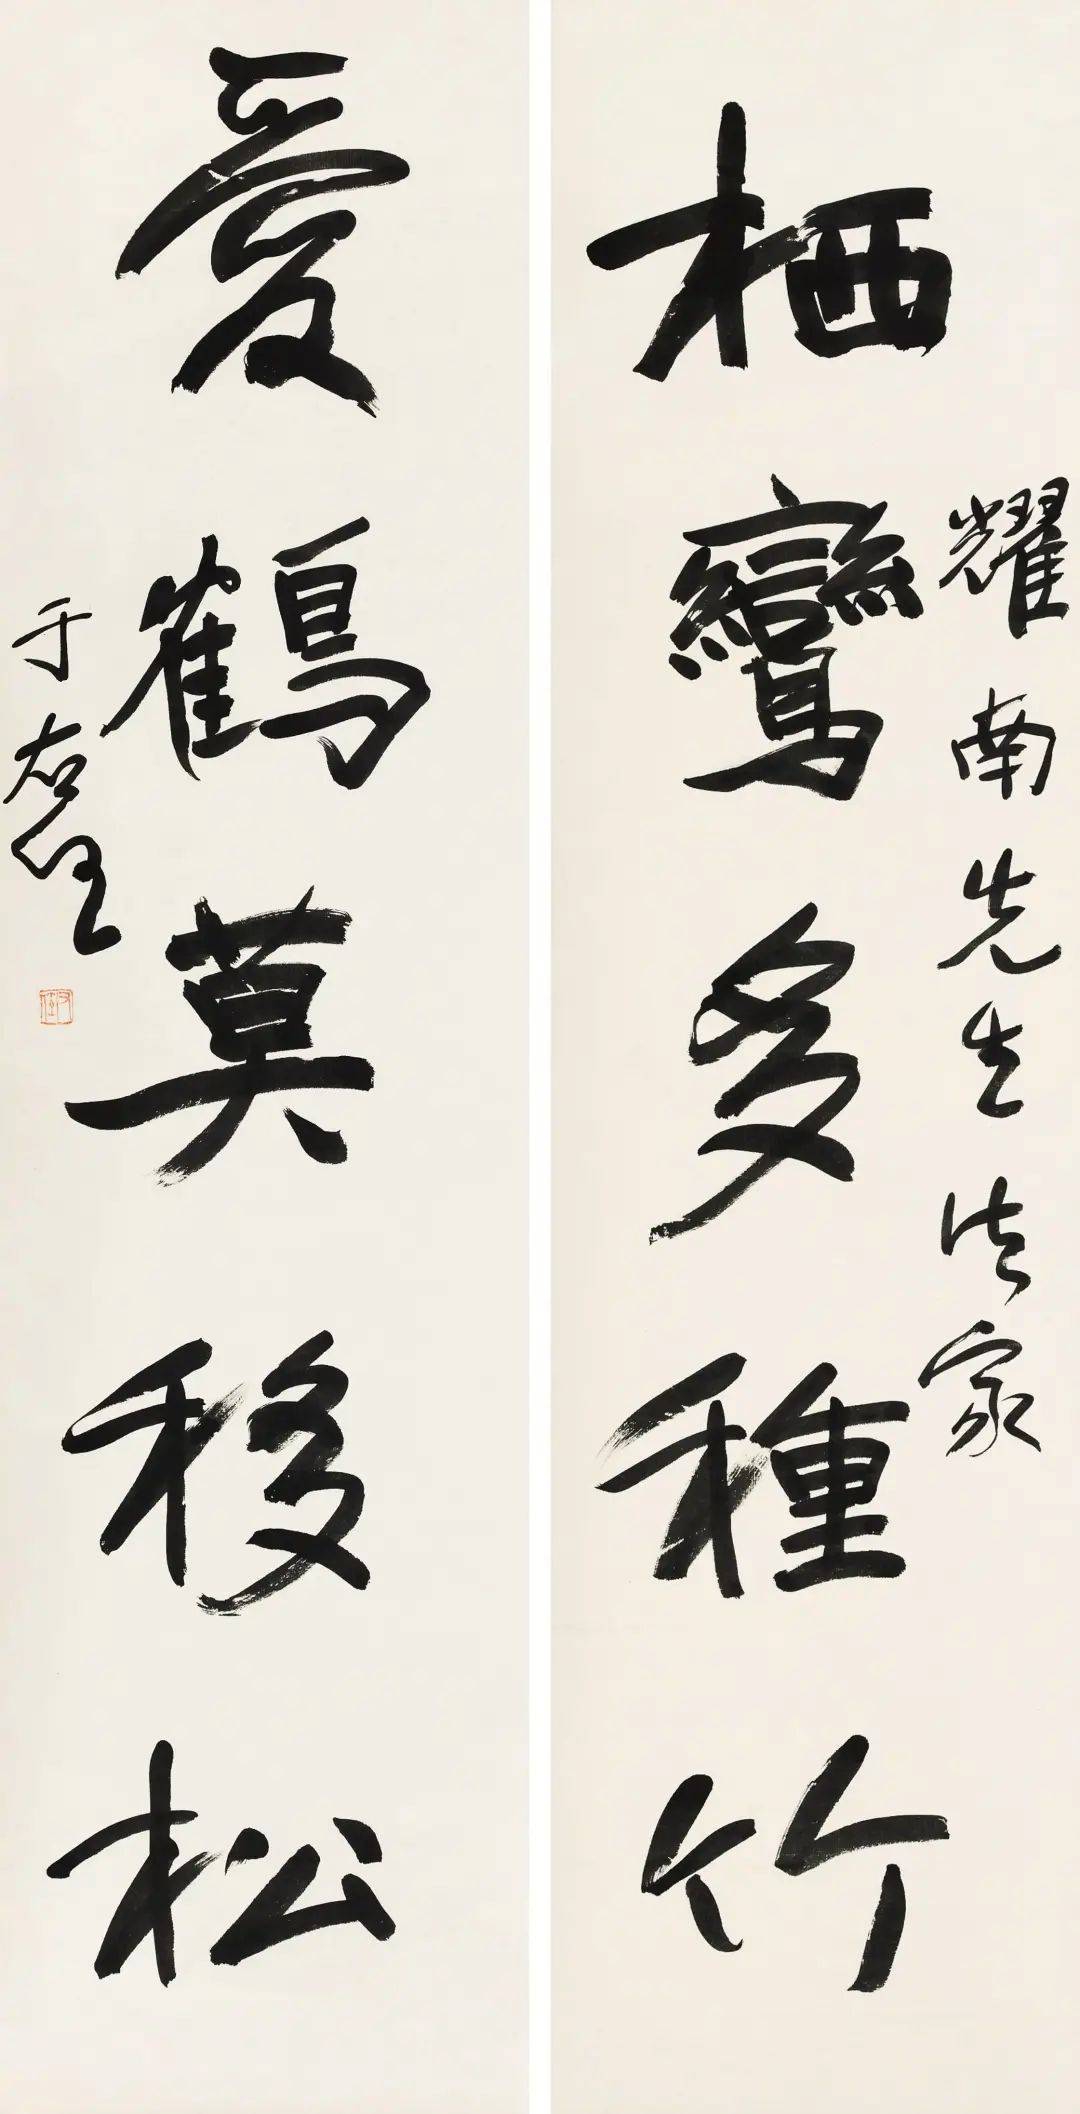 耀南先生法家
栖鸞多種竹
愛鶴莫移松
于右任
右任